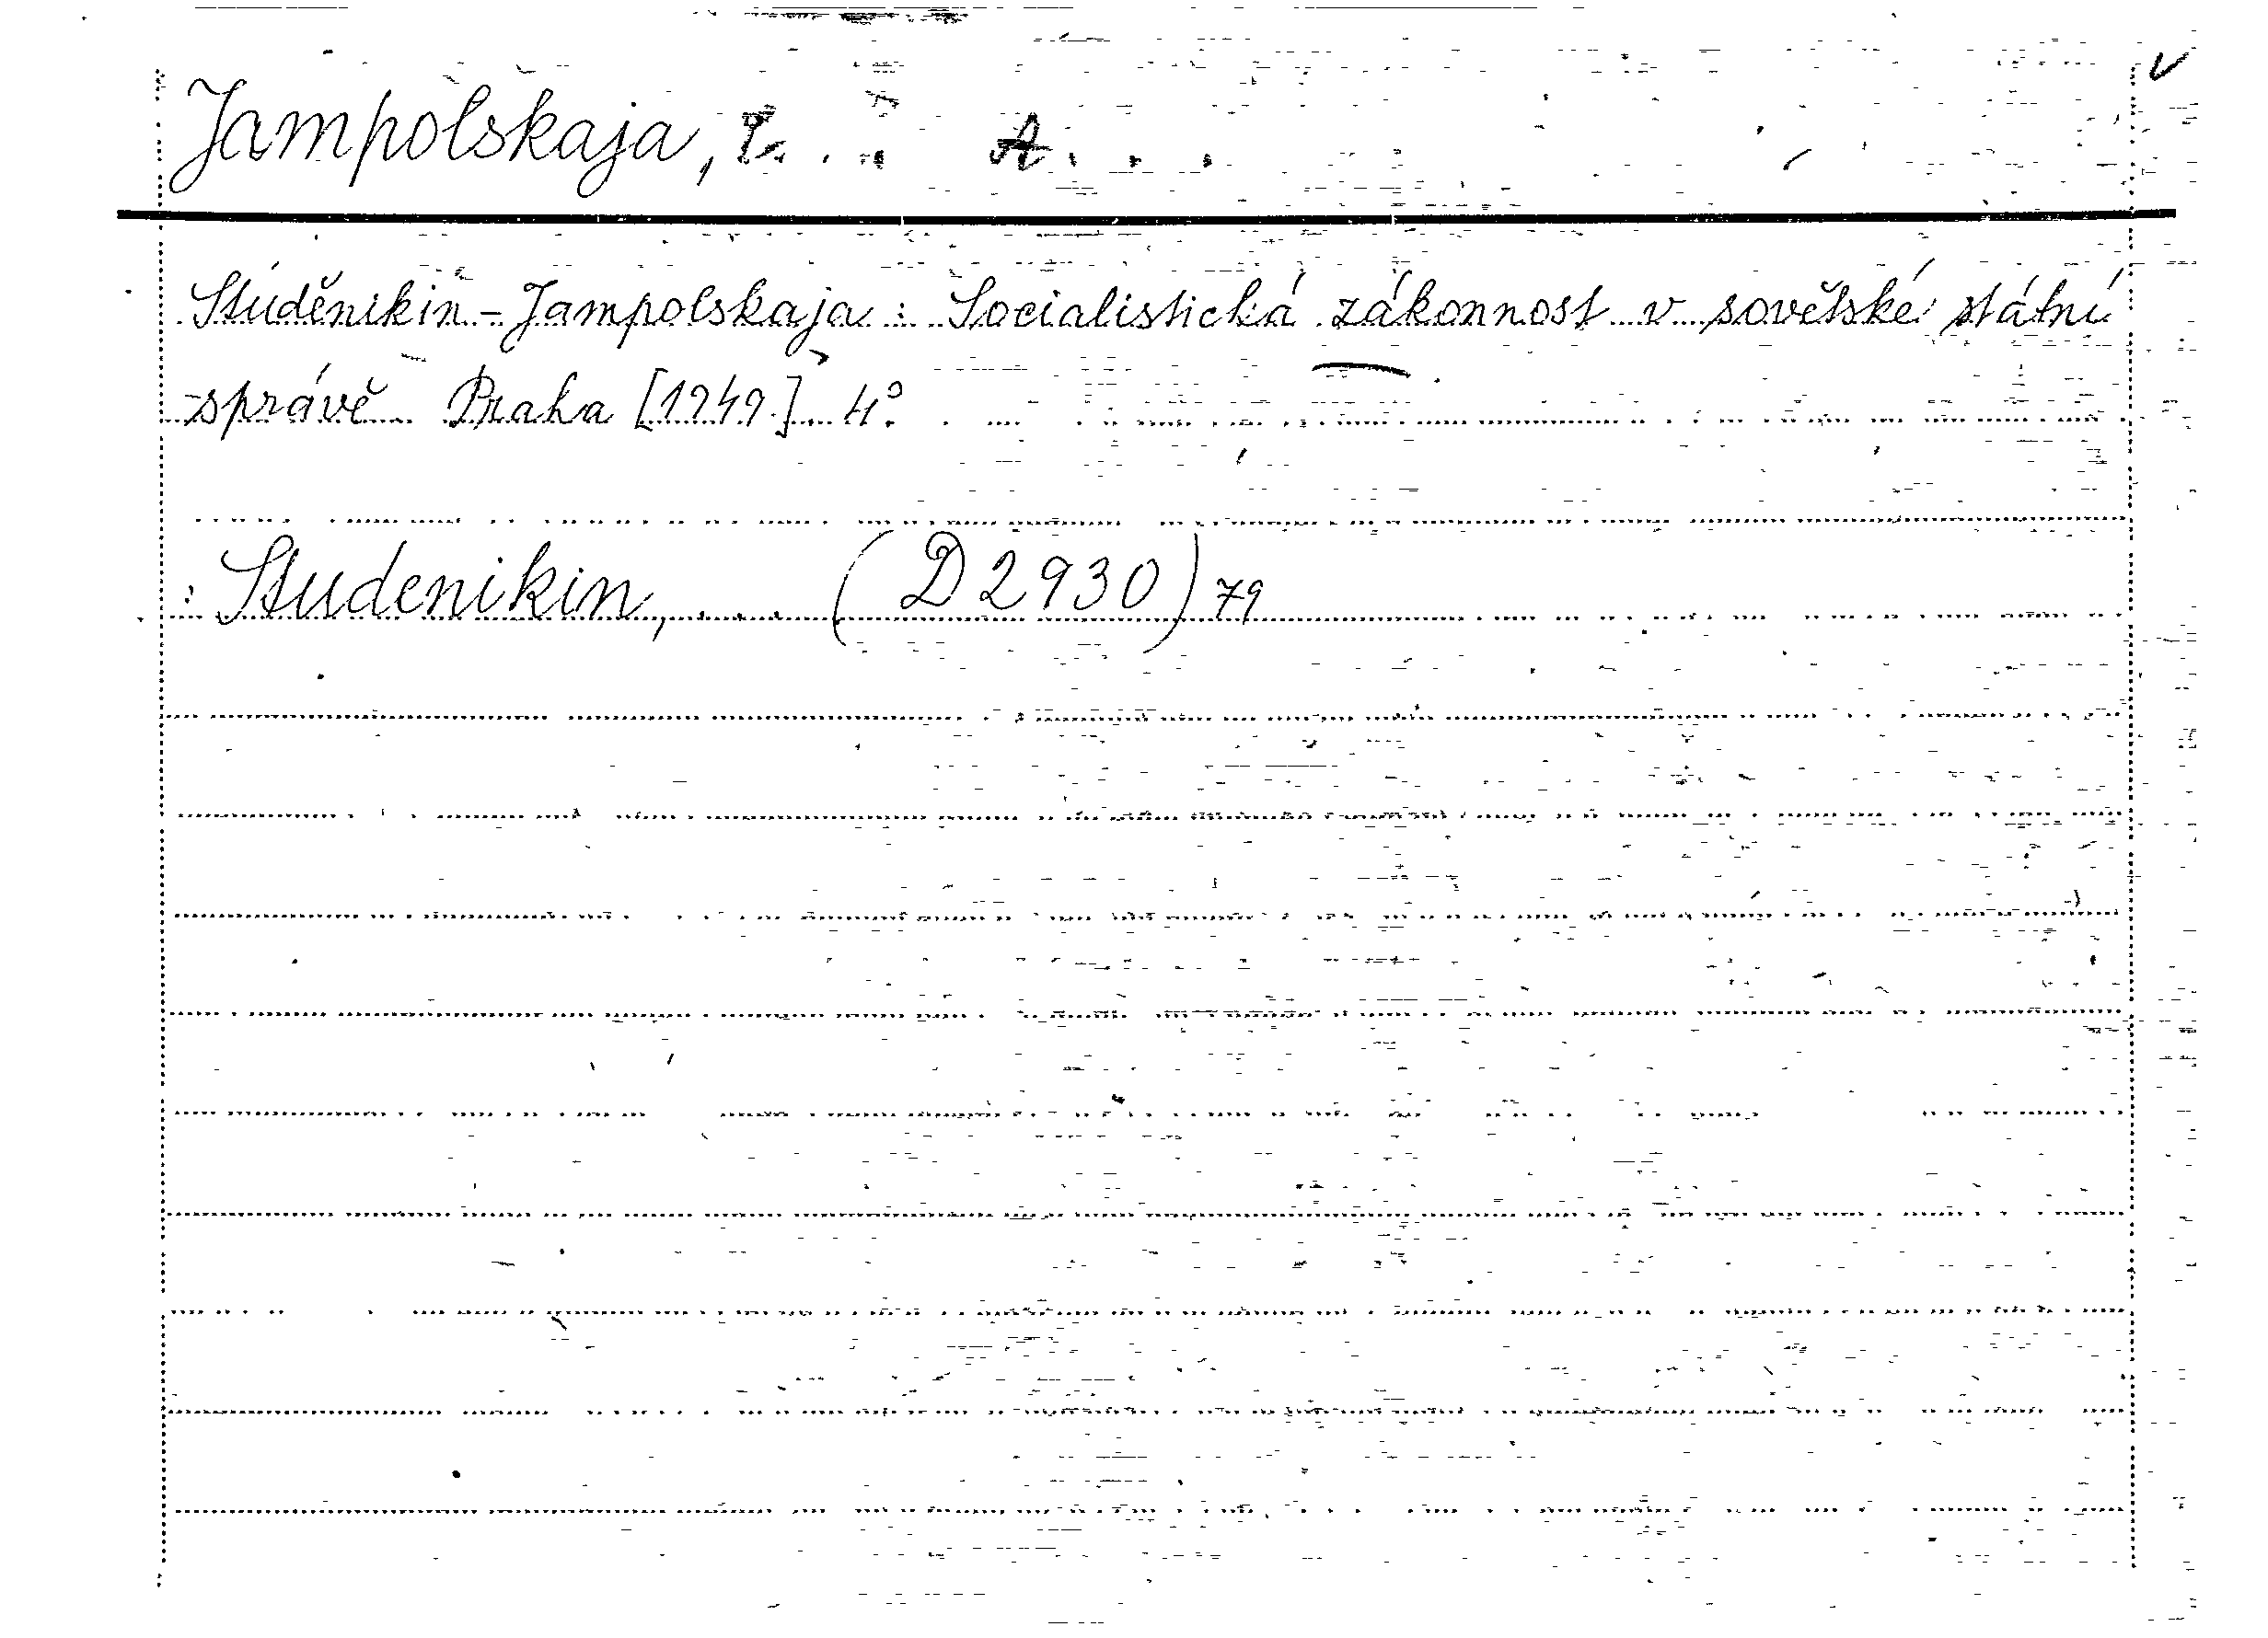 Jampolskaja, . . . A. . .
Studěnikin-Jampolskaja: Socialistická zákonnost v sovětské státní
správě Praha [1949]. 4°
: Studenikin, ... (D 2930) 79